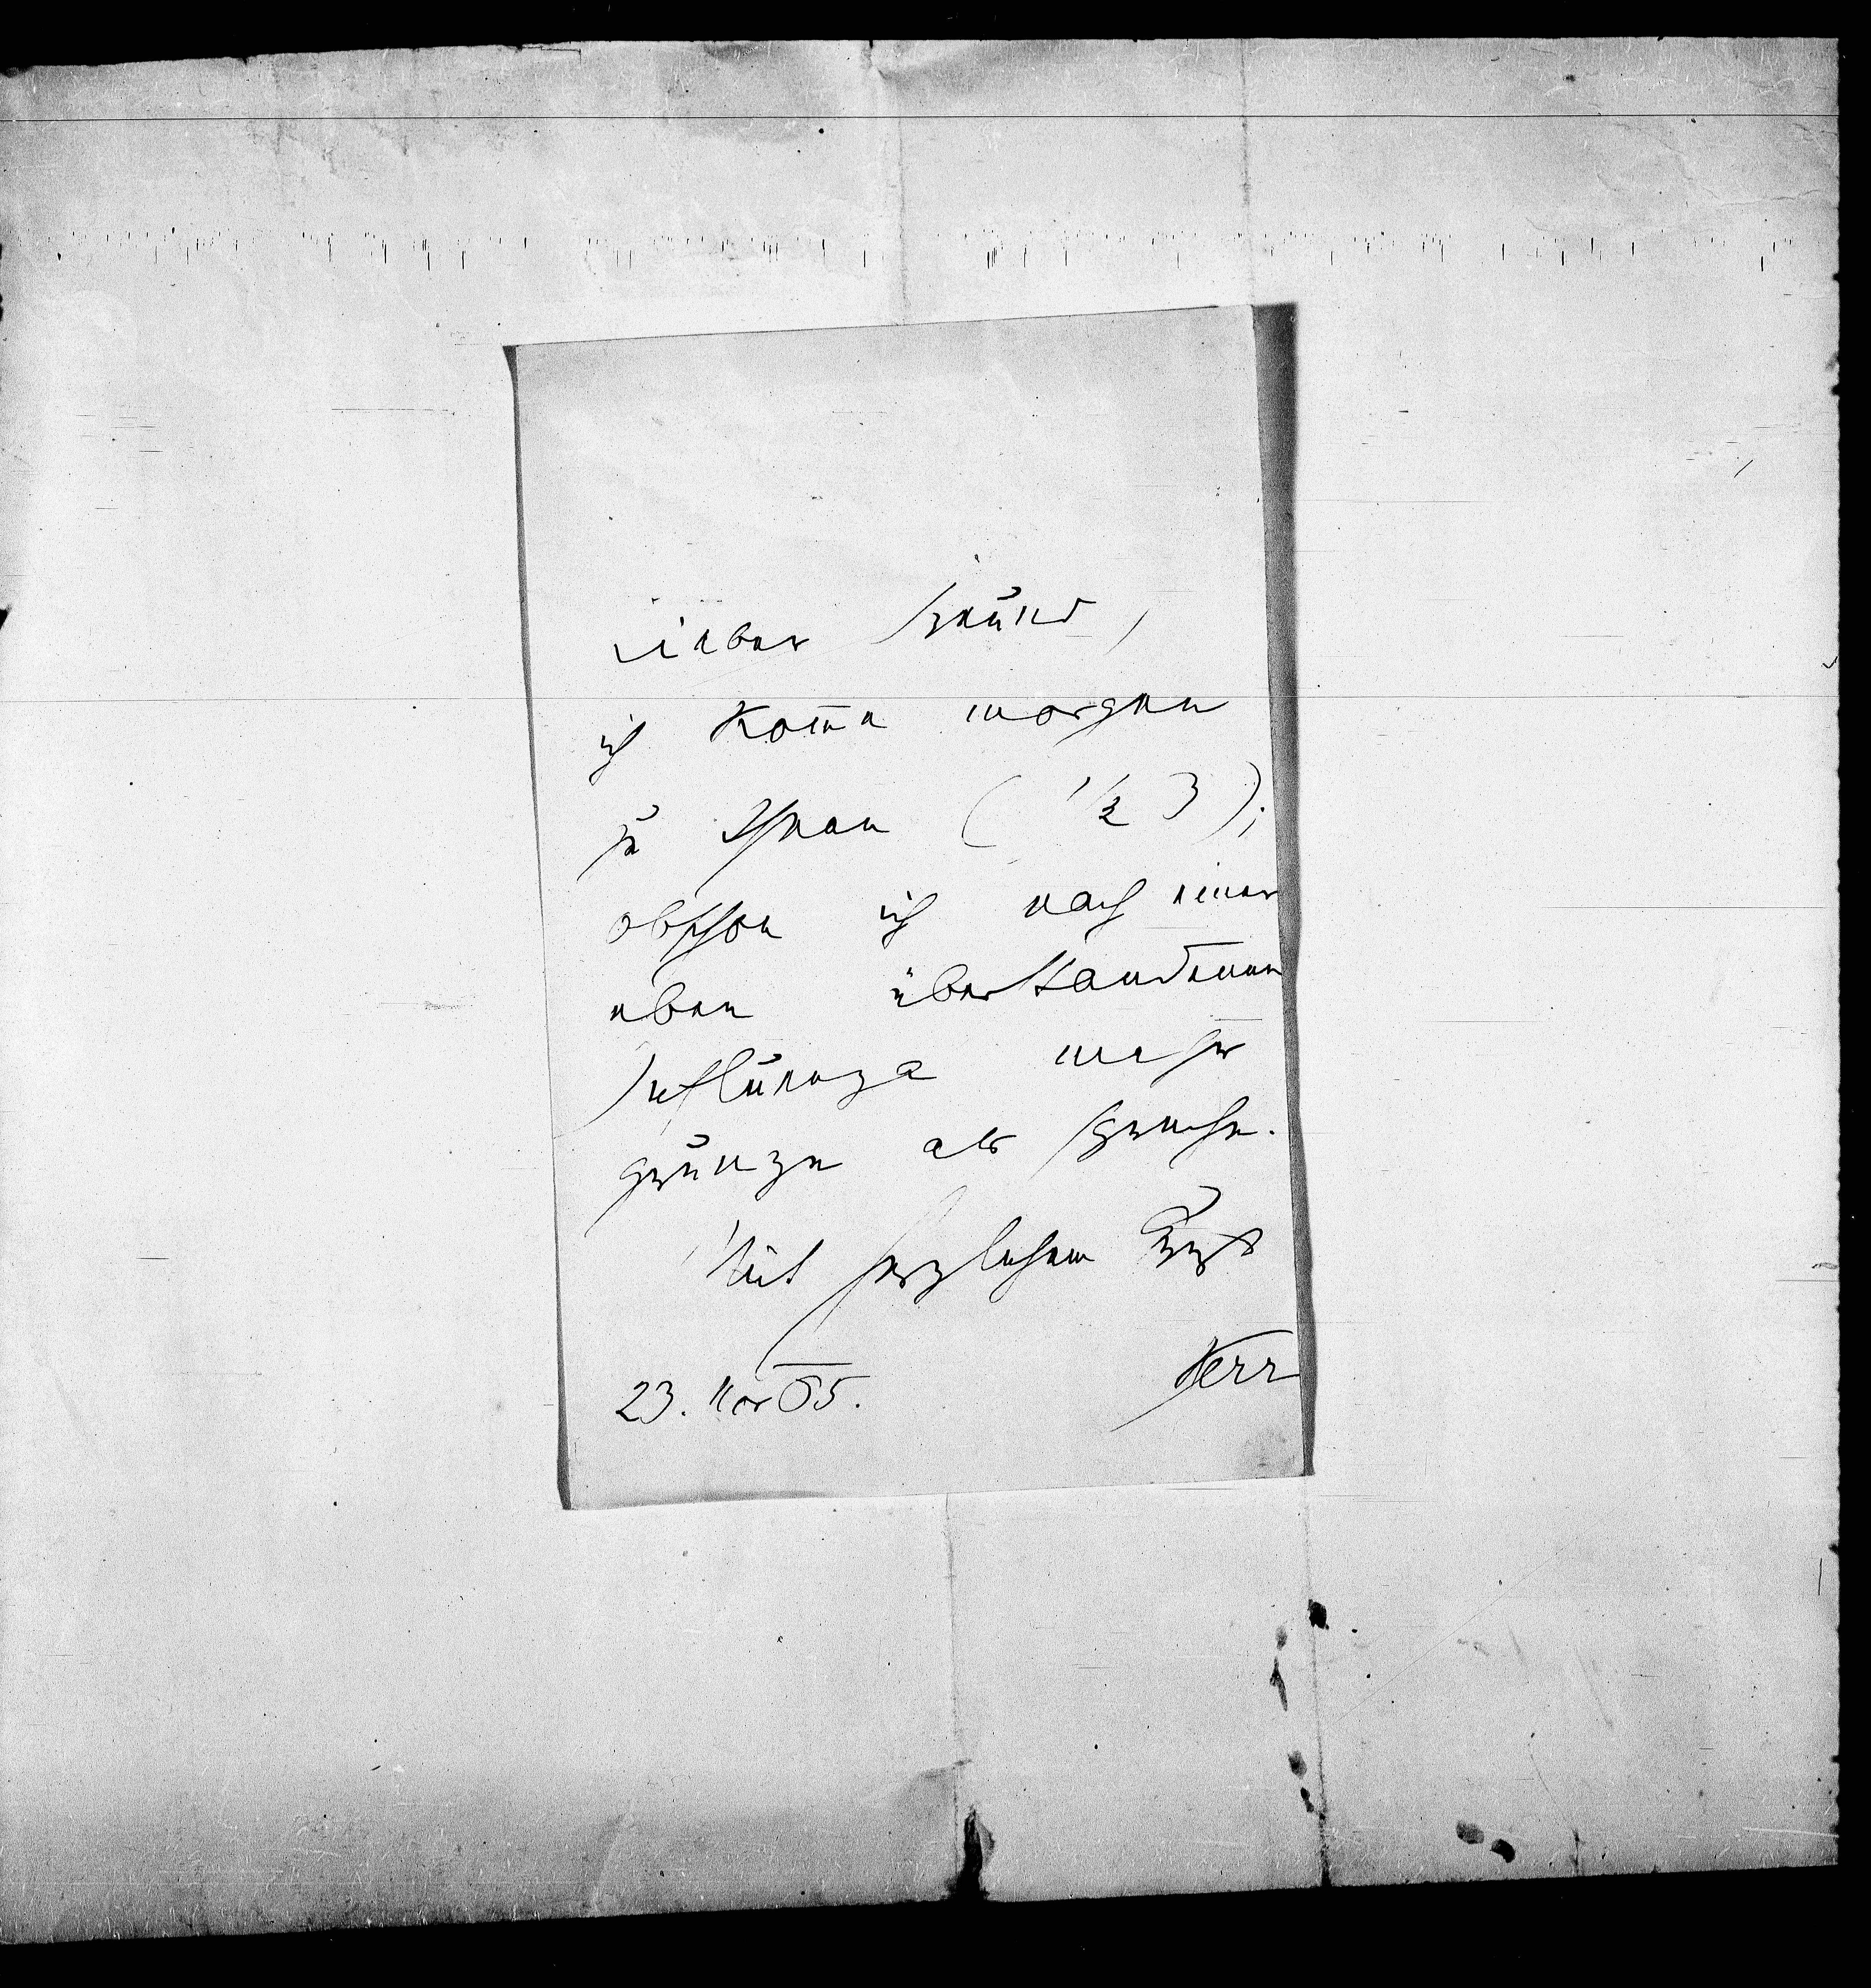 Lieber Freund,
ich kom̅e morgen
zu Ihnen (1/2 3);
obschon ich nach einer
eben überstandenen
Influenza mehr
grunze als spreche.
Mit herzlichem Gruß
Kerr
23. Nov 05.